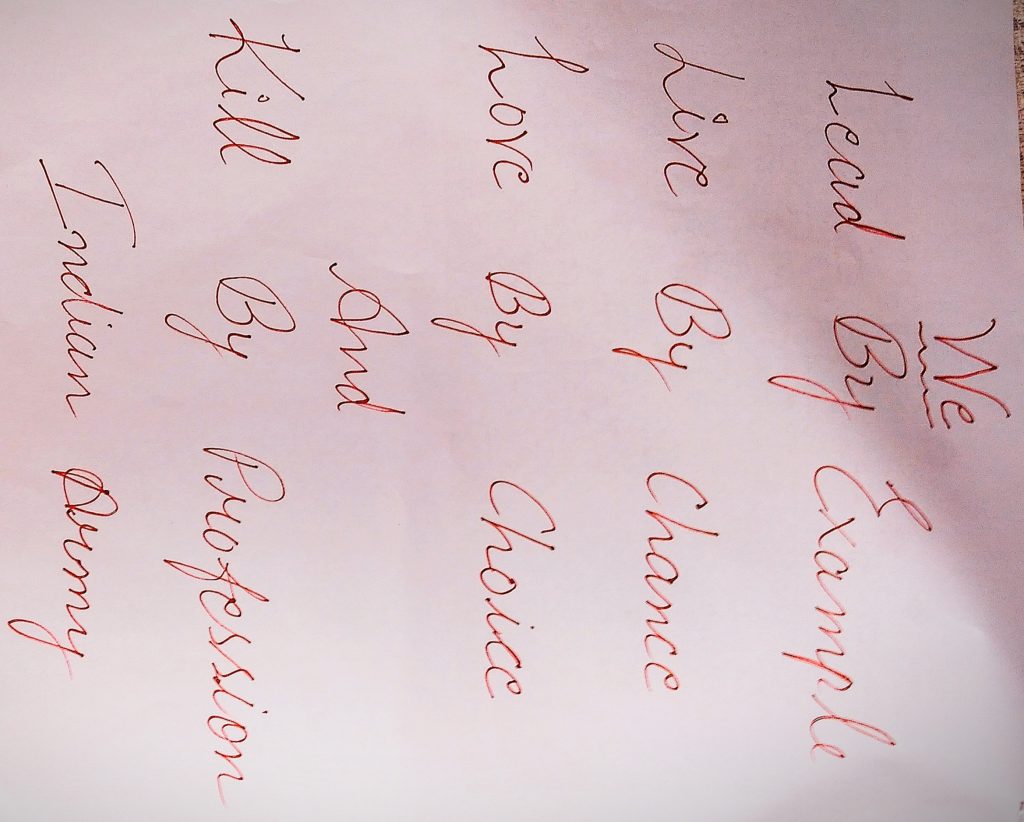 We
Lead By Example
Live By Chance
Love By Choice
And
Kill By Profession
Indian Army